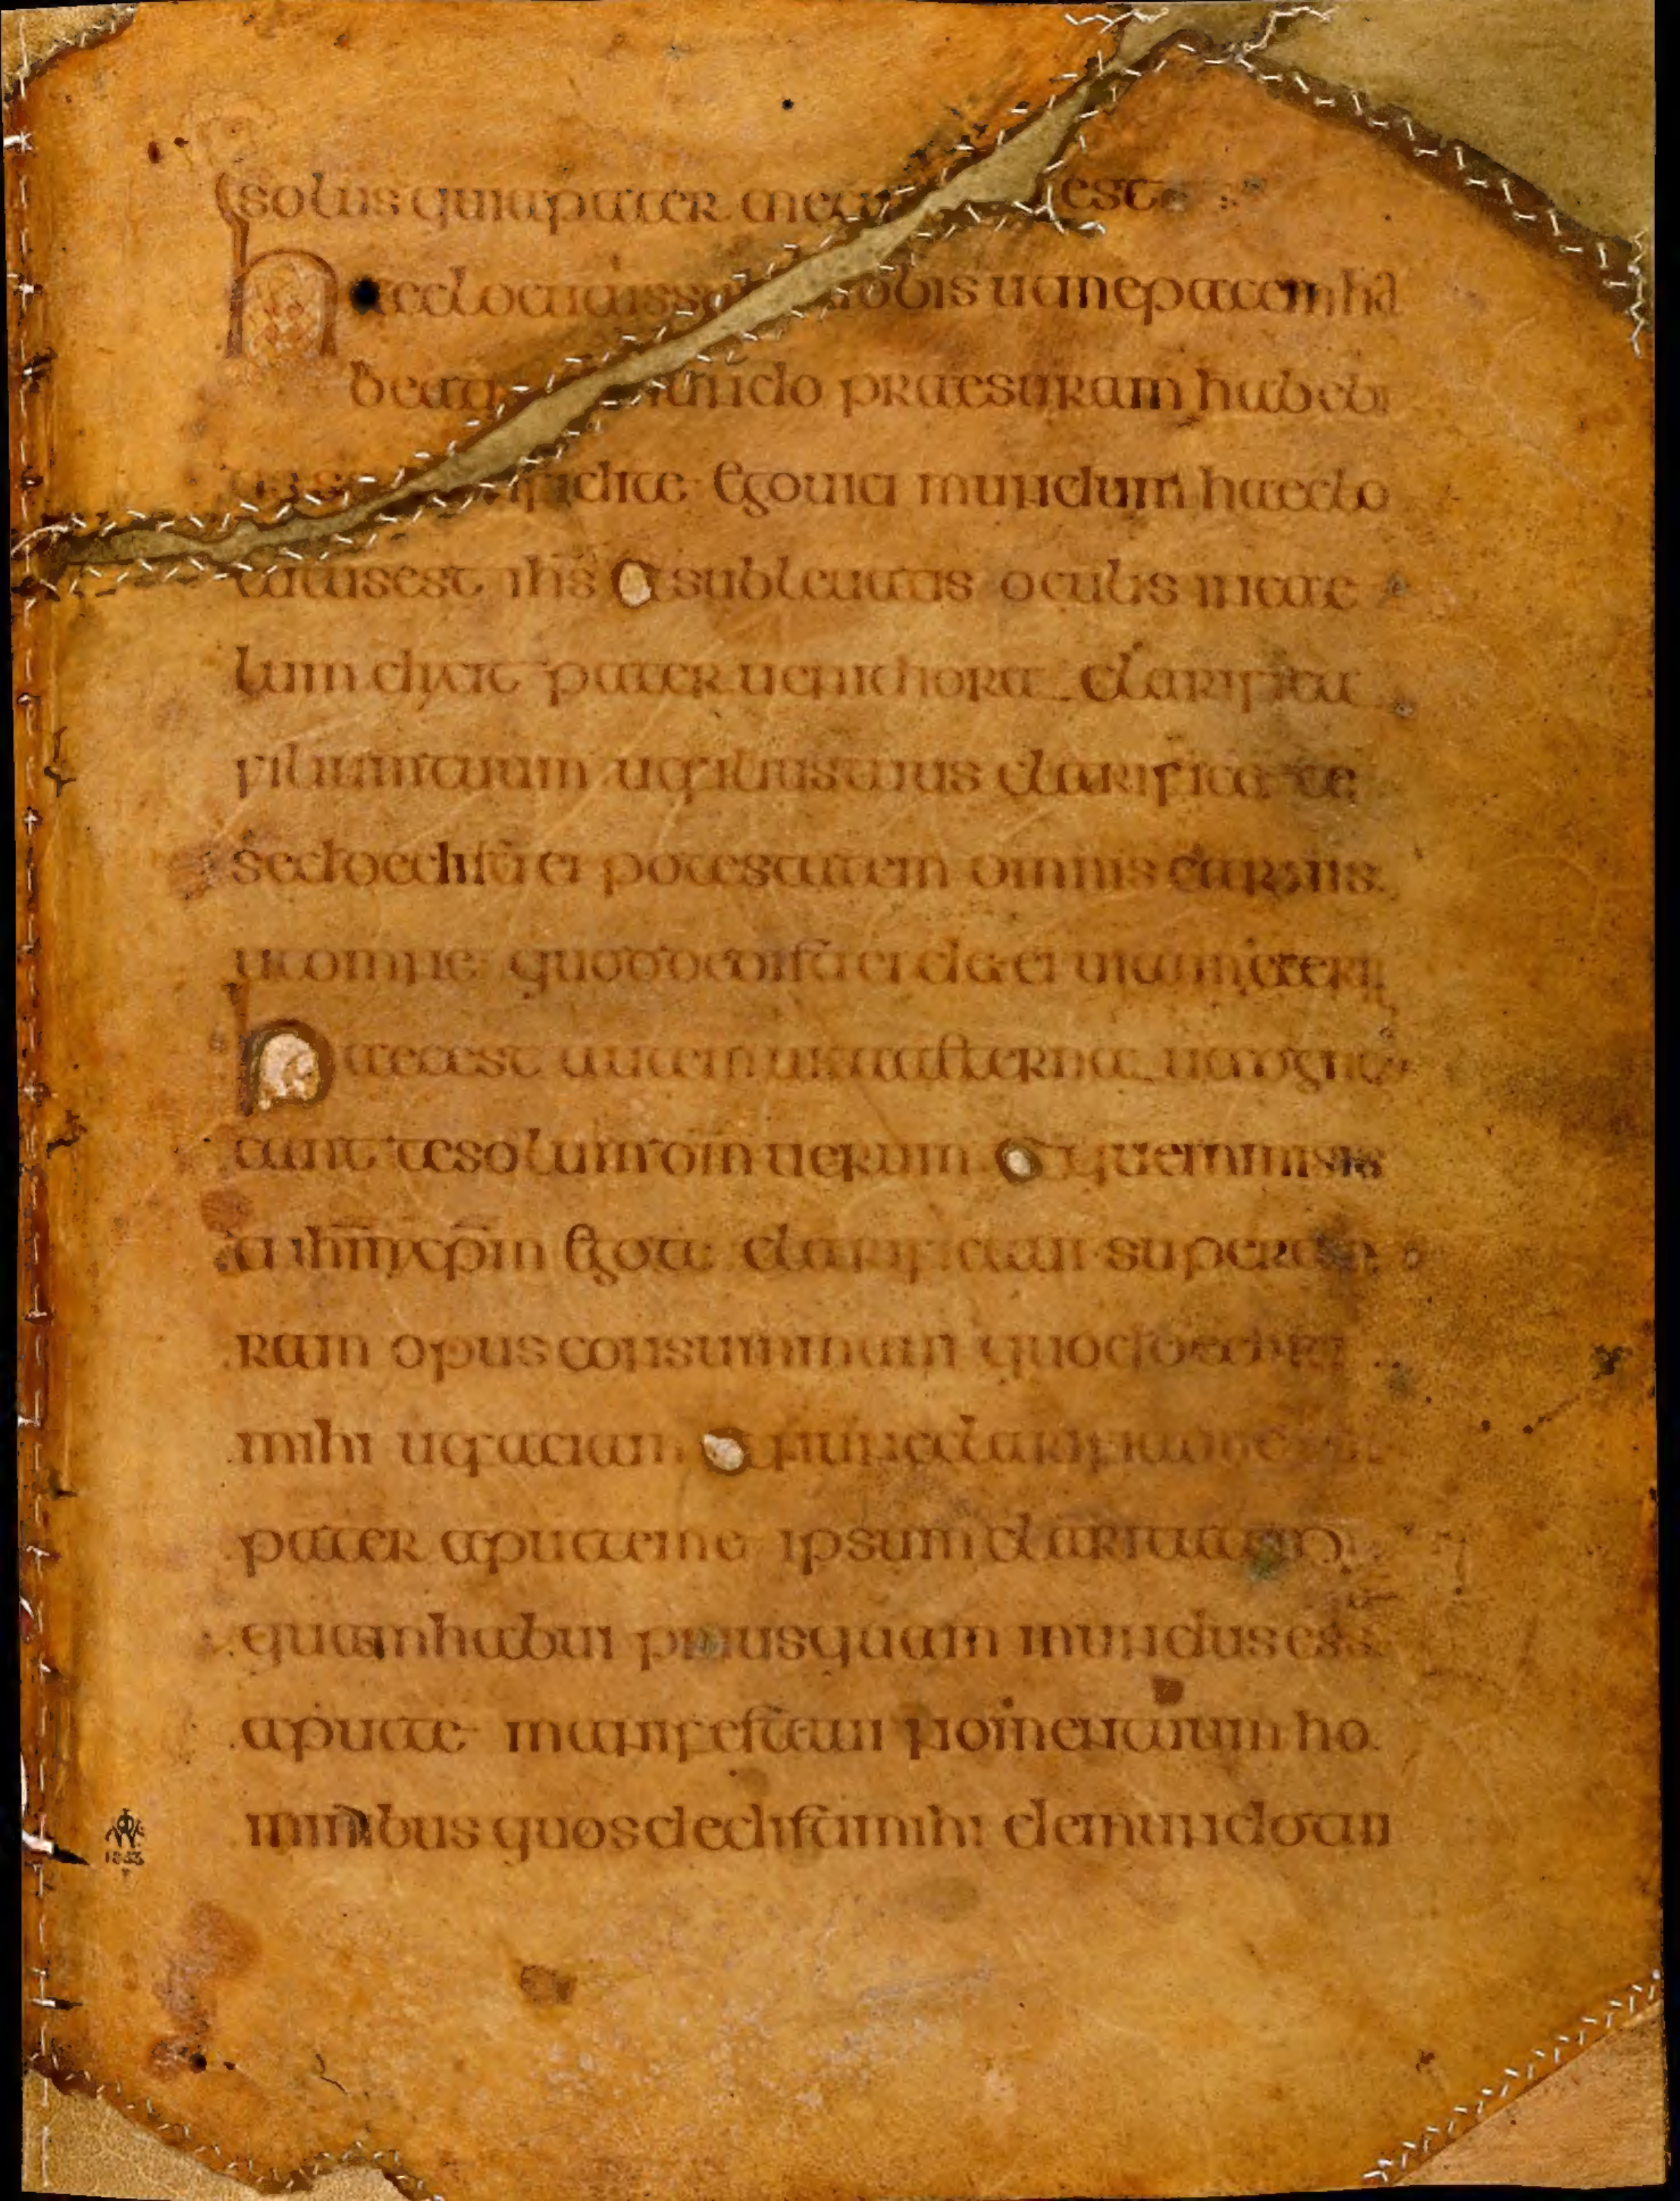 solus quia pater meus est
haec locutus sum uobis ut in me pacem ha
beatis mundo praesuram habebi
dite Ego uici mundum haec lo
cutus est ihs Et subleuatis oculis in cae
lum dixit pater uenit hora clarifica
filium tuum ut filius tuus clarificet te
sed dedisti ei potestatem omnis carnis
ut omne quod dedisti ei det ei uitam aeter
haec est autem uita aeterna ut cogno
cant te solum dm uerum et quem missis
ti ihm xpm Ego te clarificaui super ter
ram opus consummaui quod dedisti
mihi ut faciam et nunc clarifica me
pater aput te me ipsum claritatem
quam habui priusquam mundus ess
aput te manifestaui nomen tuum ho
minibus quos dedisti mihi de mundo tui